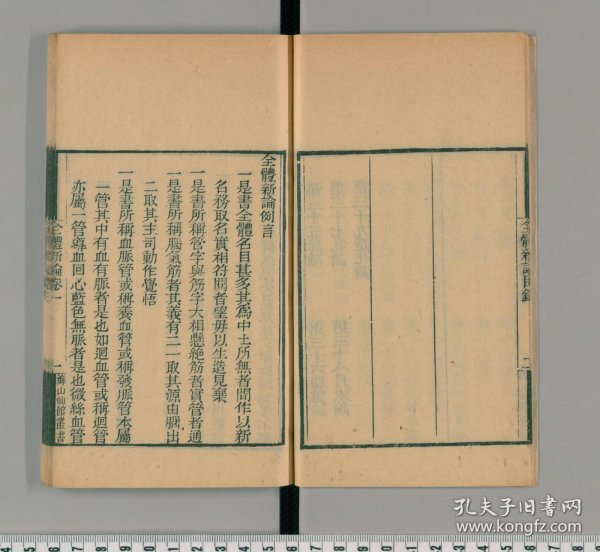 全體新論目錄
二
全體新論例言
一是書全體名目甚多其爲中土所無者間作以新
名務取名實相符閱者望毋以生造見棄
一是書所稱管字與筋字大相懸絶筋者實管者通
一是書所稱腦氣筋者其義有二一取其源由腦出
二取其主司動作覺悟
一是書所稱血脈管或稱養血管或稱發脈管本屬
一管其中有血有脈者是也如迴血管或稱迴管
亦屬一管導血回心藍色無脈者是也微絲血管
全體新論卷一
一
海山仙館叢書
孔夫子旧书网
www.kongfz.com